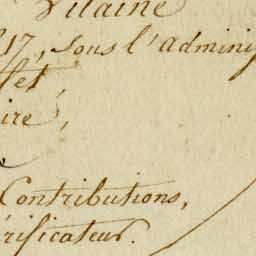 Vilaine
17, sous l'admini
fet,
ire,
Contributions,
rificateur.